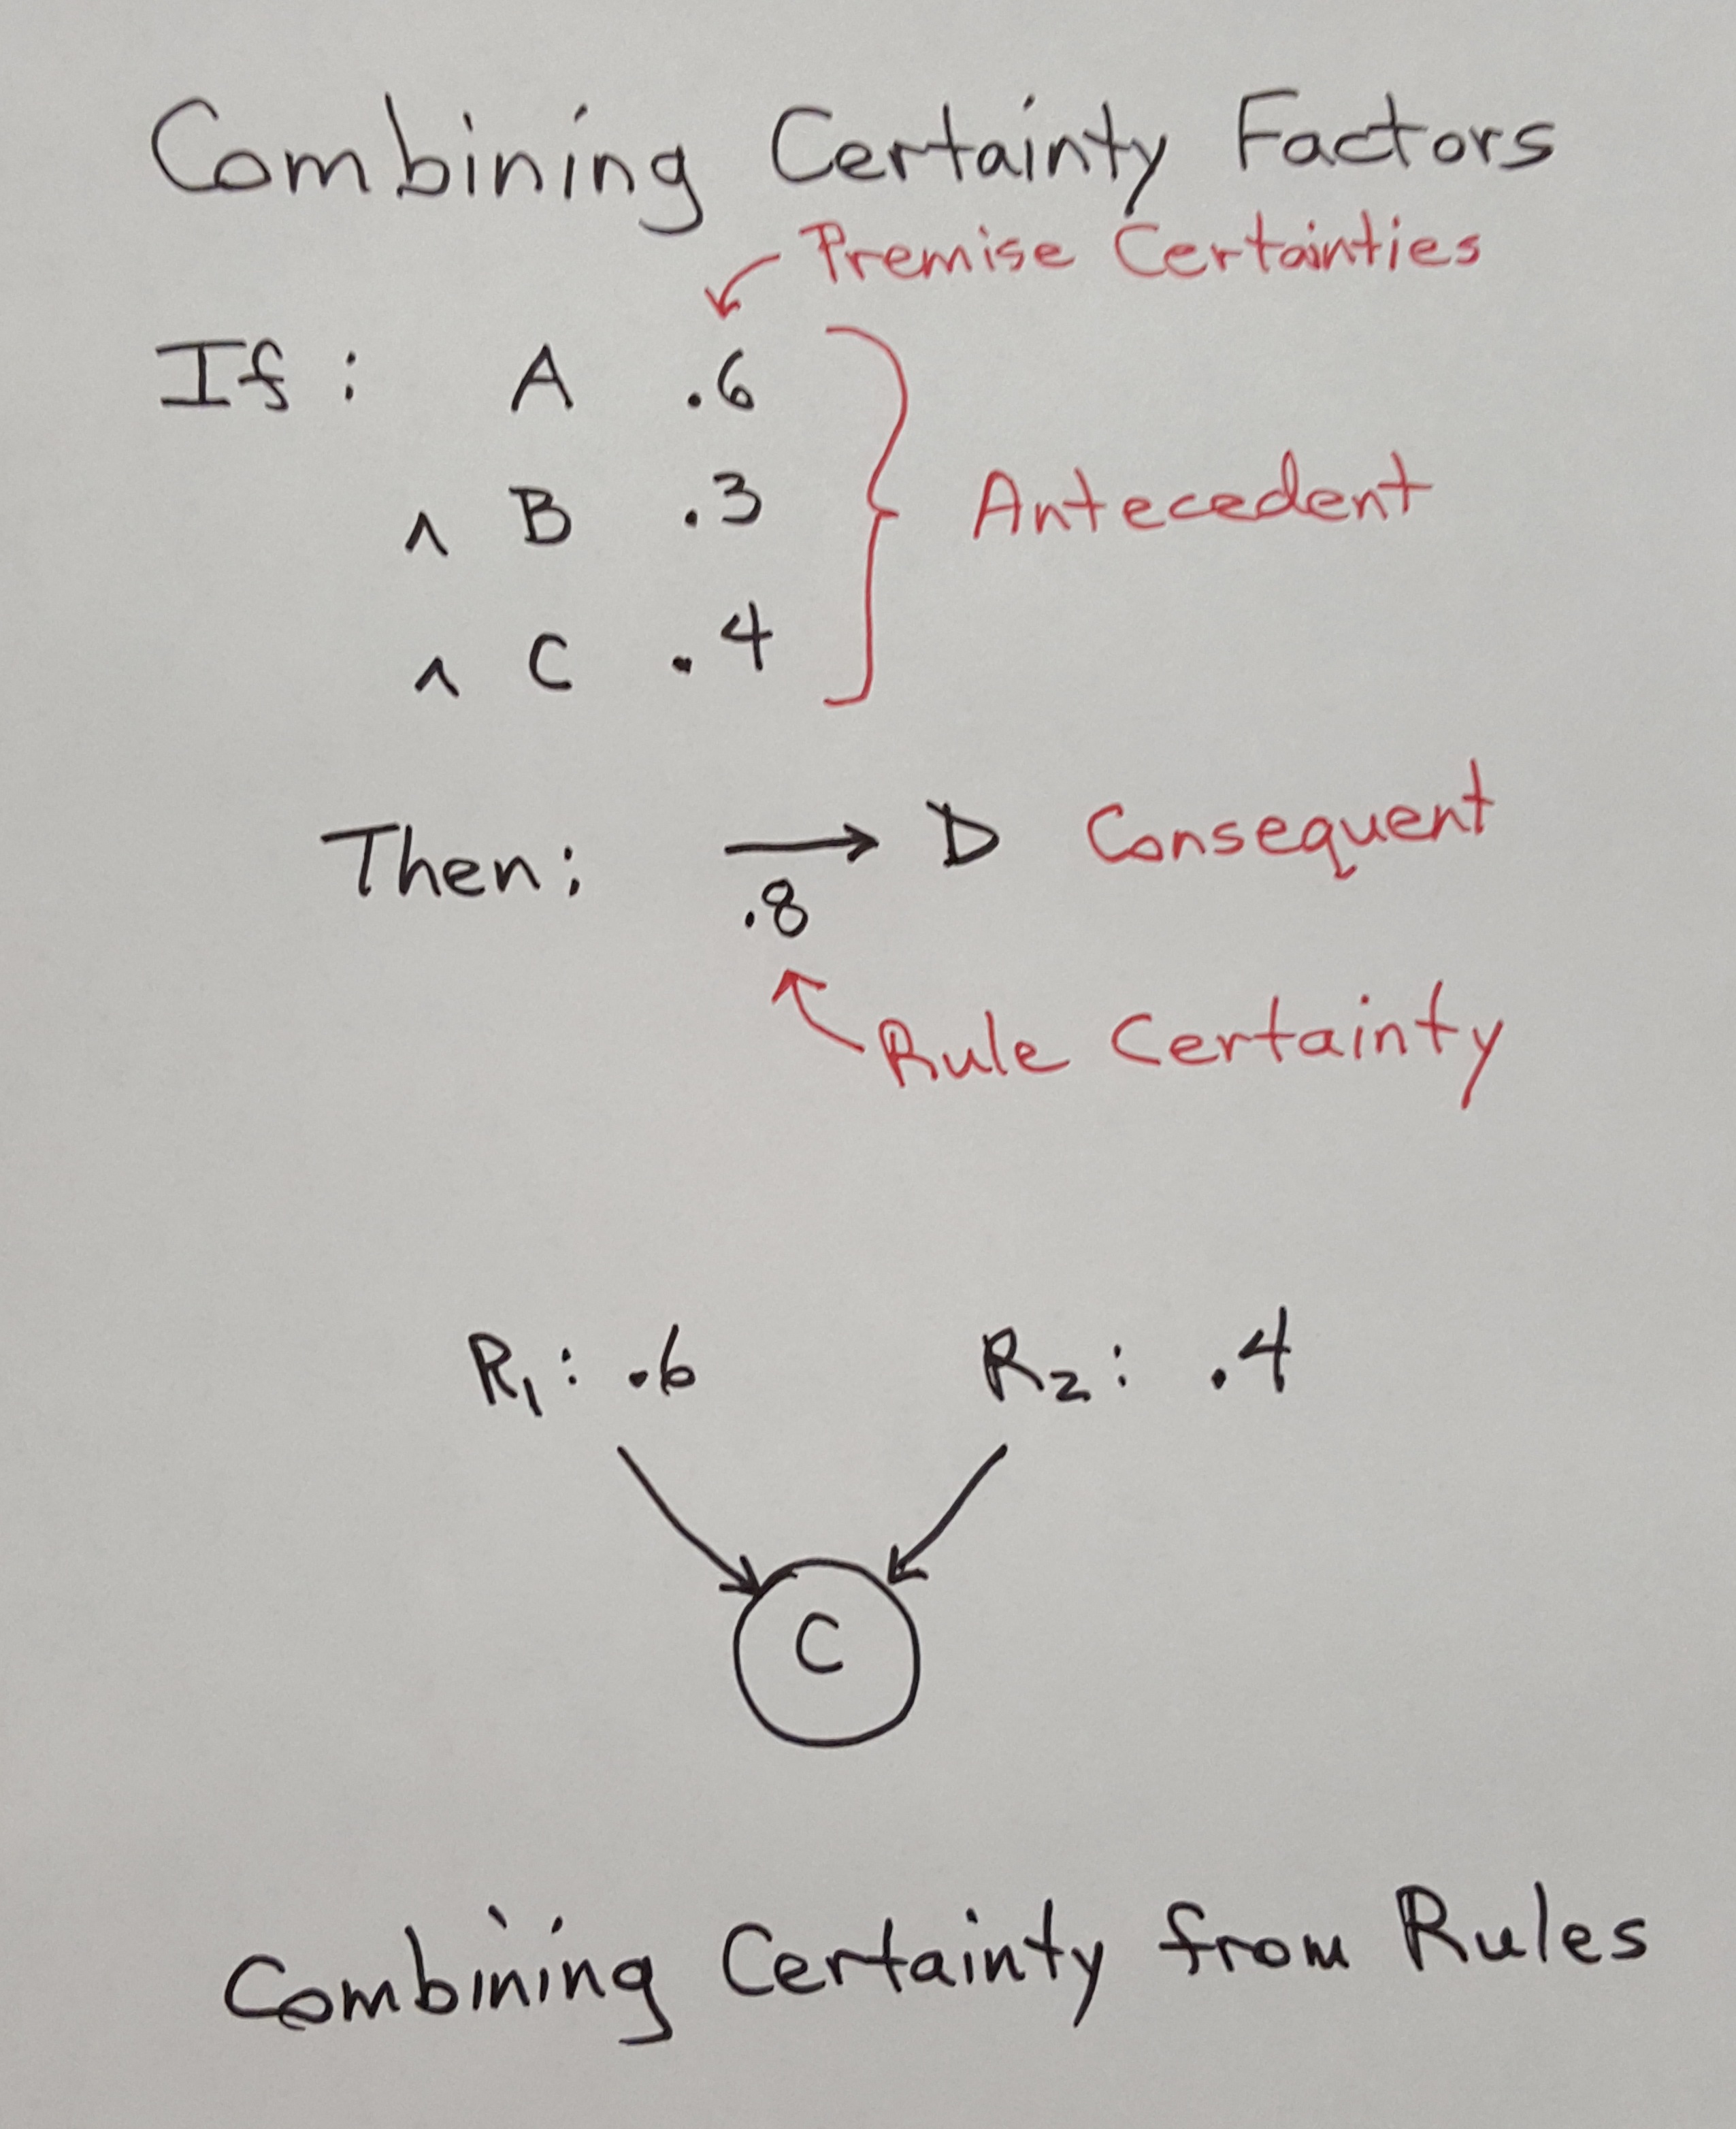 Combining Certainty Factors
Premise Certainties
If: A .6
∧ B .3
Antecedent
∧ C .4
Then: → D Consequent
.8
Rule Certainty
R₁: .6 R₂: .4
C
Combining Certainty from Rules